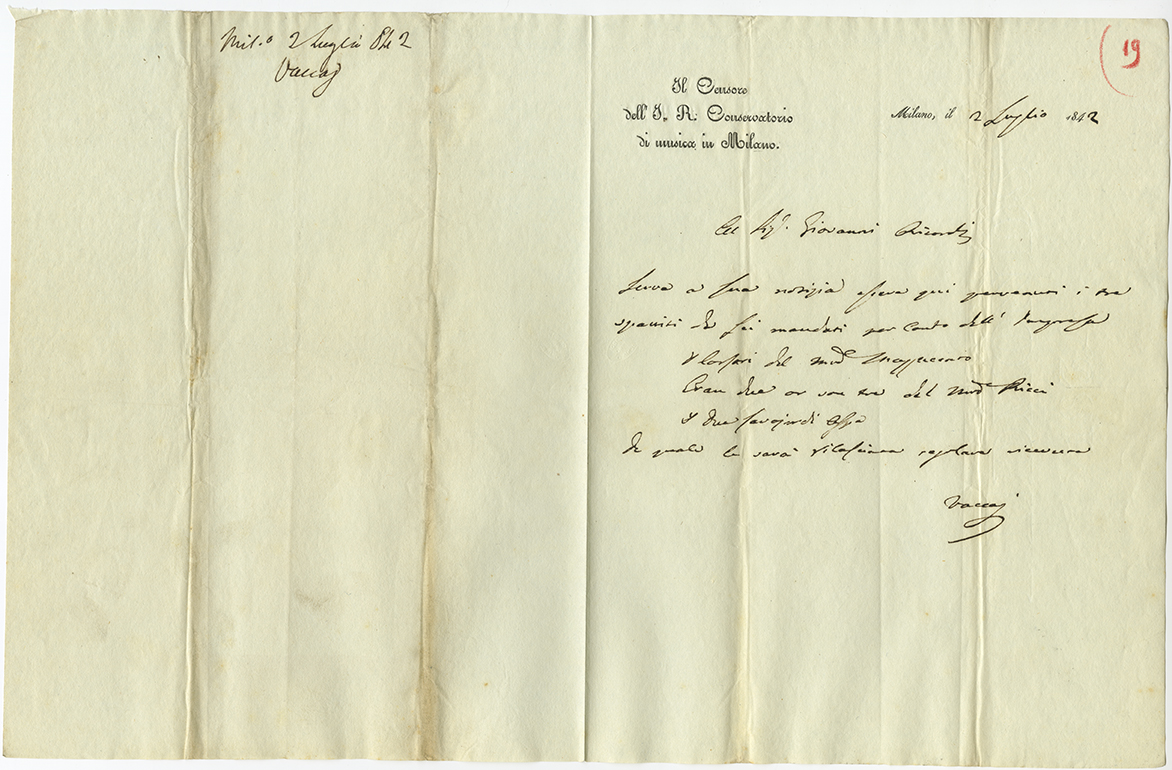 Mil.o 2 Luglio 842
Vaccaj
19
Il Censore
dell' I. R. Conservatorio
di musica in Milano.
Milano, il 2 Luglio 1842
Al Sig.r Giovanni Ricordi
Serva a sua notizia essere qui pervenuti i tre
spartiti da Lei mandati per conto dell' Impresa
I Corsari del m.o Mazzucato
Eran due or son tre del m.o Ricci
I due
de quali le sarà rilasciata regolare ricevuta
Vaccaj